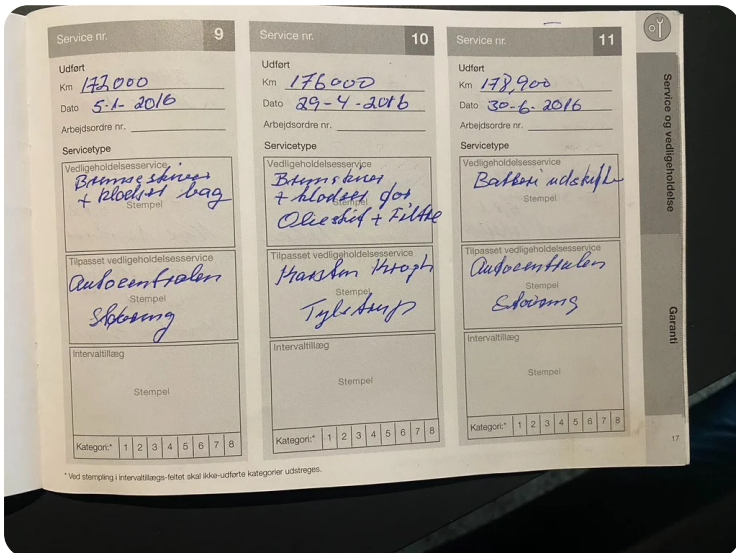 Service nr. 9
Udført
Km 172000
Dato 5-1-2016
Arbejdsordre nr.
Servicetype
Vedligeholdelsesservice
Bremseskiver
+ klodser bag
Stempel
Tilpasset vedligeholdelsesservice
Autocentralen
Stempel
Støvring
Intervaltillæg
Stempel
Kategori:* 1 2 3 4 5 6 7 8
Service nr. 10
Udført
Km 176000
Dato 29-4-2016
Arbejdsordre nr.
Servicetype
Vedligeholdelsesservice
Bremseskiver
+ klodser for
Stempel
Olieskift + Filtre
Tilpasset vedligeholdelsesservice
Karsten Krogh
Stempel
Tylstrup
Intervaltillæg
Stempel
Kategori:* 1 2 3 4 5 6 7 8
Service nr. 11
Udført
Km 178,900
Dato 30-6-2016
Arbejdsordre nr.
Servicetype
Vedligeholdelsesservice
Batteri udskifte
Stempel
Tilpasset vedligeholdelsesservice
Autocentralen
Stempel
Støvring
Intervaltillæg
Stempel
Kategori:* 1 2 3 4 5 6 7 8
* Ved stempling i intervaltillægs-feltet skal ikke-udførte kategorier udstreges.
Service og vedligeholdelse
Garanti
17